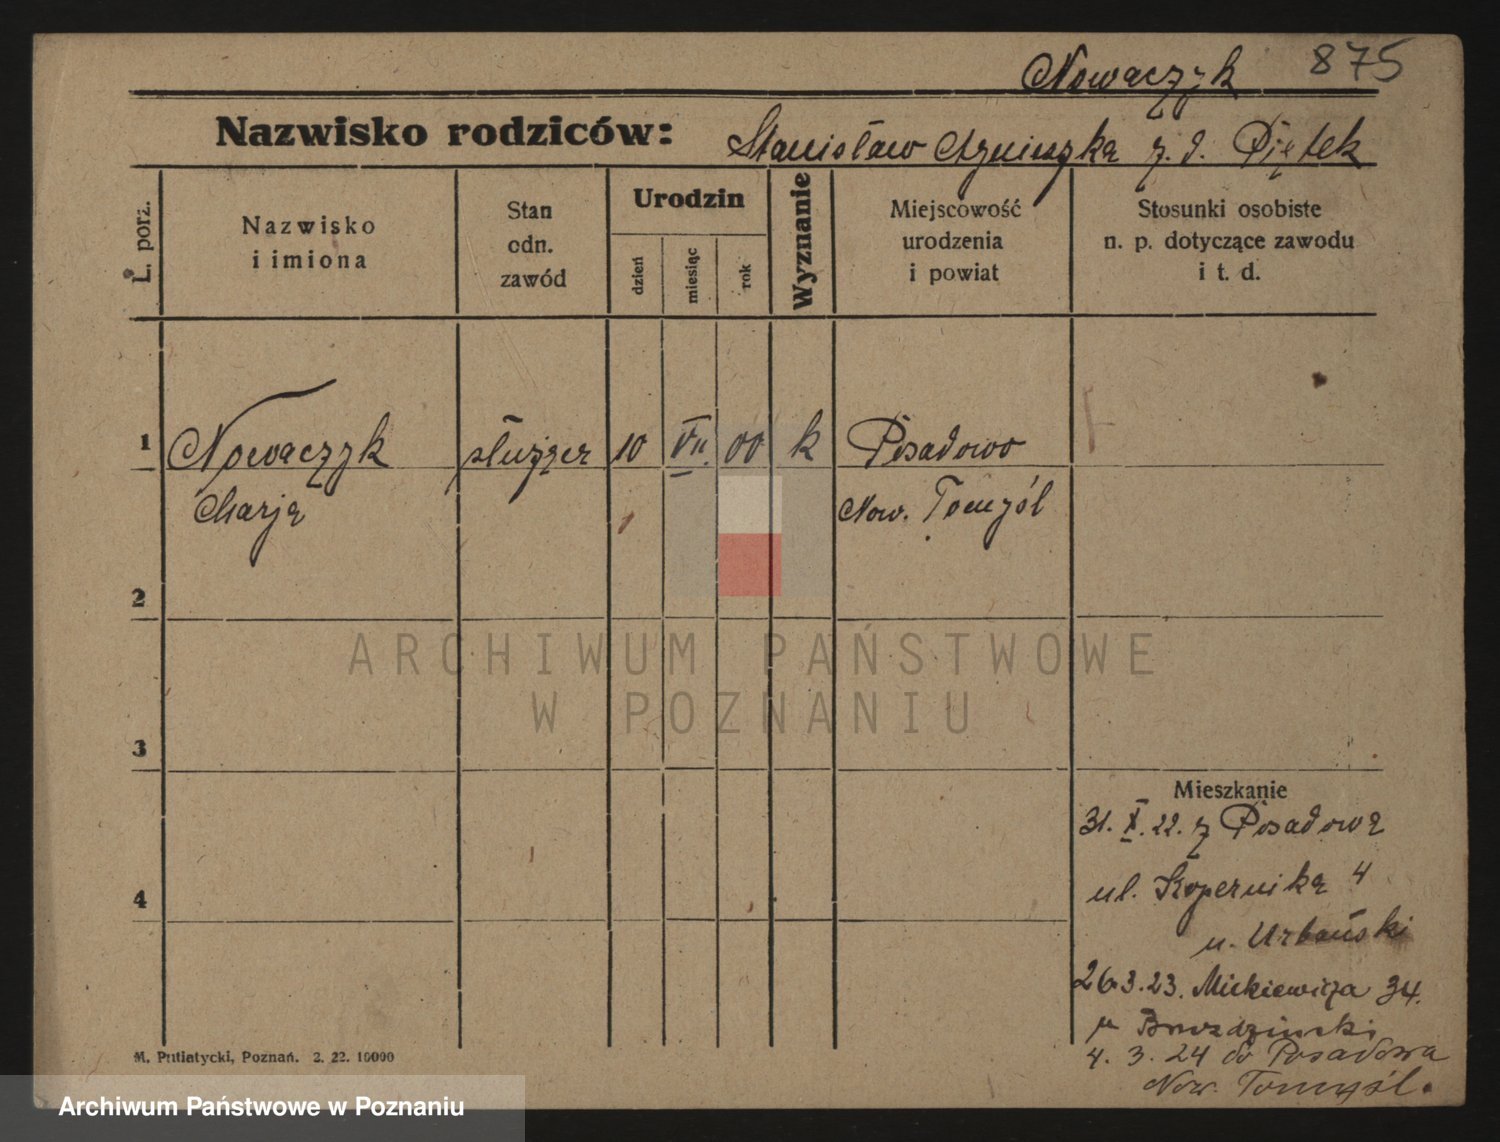 Nowaczyk 875
Nazwisko rodziców: Stanisław Agnieszka z. d. Piętek
L. porz.
Nazwisko
i imiona
Stan
odn.
zawód
Urodzin
dzień
miesiąc
rok
Wyznanie
Miejscowość
urodzenia
i powiat
Stosunki osobiste
n. p. dotyczące zawodu
i t. d.
1 Nowaczyk służącz 10 VII. 00 k Posadowo
Marja Now. Tomyśl
2
ARCHIWUM PAŃSTWOWE
W POZNANIU
3
Mieszkanie
31. X. 22. z Posadowa
4
ul. Kopernika 4
u. Urbański
26.3.23. Mickiewicza 34.
4. 3. 24 do Posadowa
Now. Tomyśl.
M. Putiatycki, Poznań. 2. 22. 10000
Archiwum Państwowe w Poznaniu